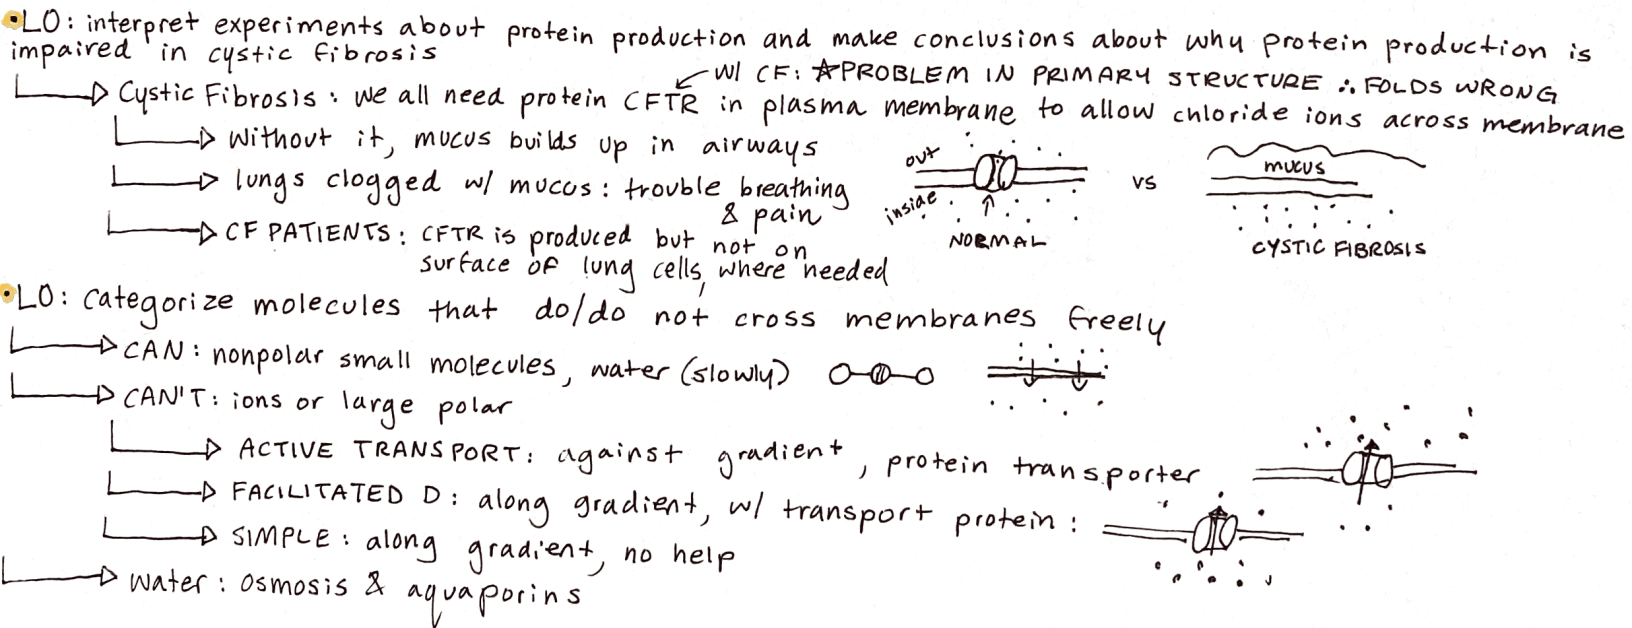 •LO: interpret experiments about protein production and make conclusions about why protein production is
impaired in cystic fibrosis
W/ CF: ☆PROBLEM IN PRIMARY STRUCTURE ∴ FOLDS WRONG
Cystic Fibrosis: we all need protein CFTR in plasma membrane to allow chloride ions across membrane
Without it, mucus builds up in airways
lungs clogged w/ mucus: trouble breathing
& pain
CF PATIENTS: CFTR is produced but not on
surface of lung cells, where needed
out
inside
NORMAL
vs
mucus
CYSTIC FIBROSIS
•LO: categorize molecules that do/do not cross membranes freely
CAN: nonpolar small molecules, water (slowly)
CAN'T: ions or large polar
ACTIVE TRANSPORT: against gradient, protein transporter
FACILITATED D: along gradient, w/ transport protein:
SIMPLE: along gradient, no help
Water: osmosis & aquaporins